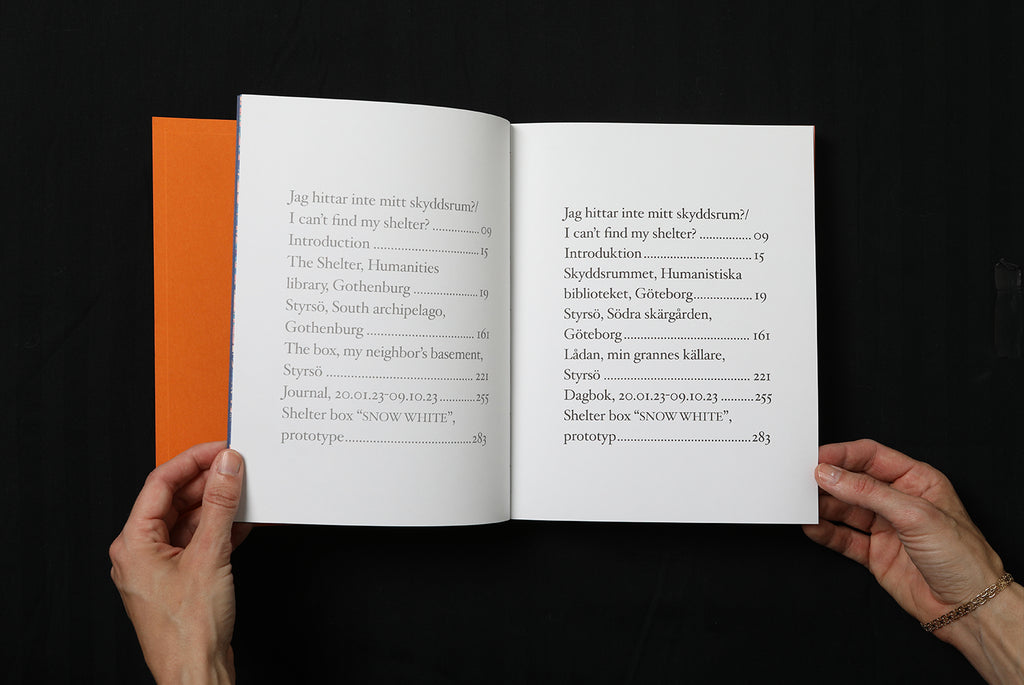 Jag hittar inte mitt skyddsrum?/
I can't find my shelter? ............... 09
Introduction ........................... 15
The Shelter, Humanities
library, Gothenburg .................... 19
Styrsö, South archipelago,
Gothenburg ............................. 161
The box, my neighbor's basement,
Styrsö ................................. 221
Journal, 20.01.23-09.10.23 ........... 255
Shelter box “SNOW WHITE”,
prototype............................... 283
Jag hittar inte mitt skyddsrum?/
I can't find my shelter? ................ 09
Introduktion............................ 15
Skyddsrummet, Humanistiska
biblioteket, Göteborg................. 19
Styrsö, Södra skärgården,
Göteborg ............................... 161
Lådan, min grannes källare,
Styrsö .................................. 221
Dagbok, 20.01.23-09.10.23 ..........255
Shelter box “SNOW WHITE”,
prototyp................................ 283